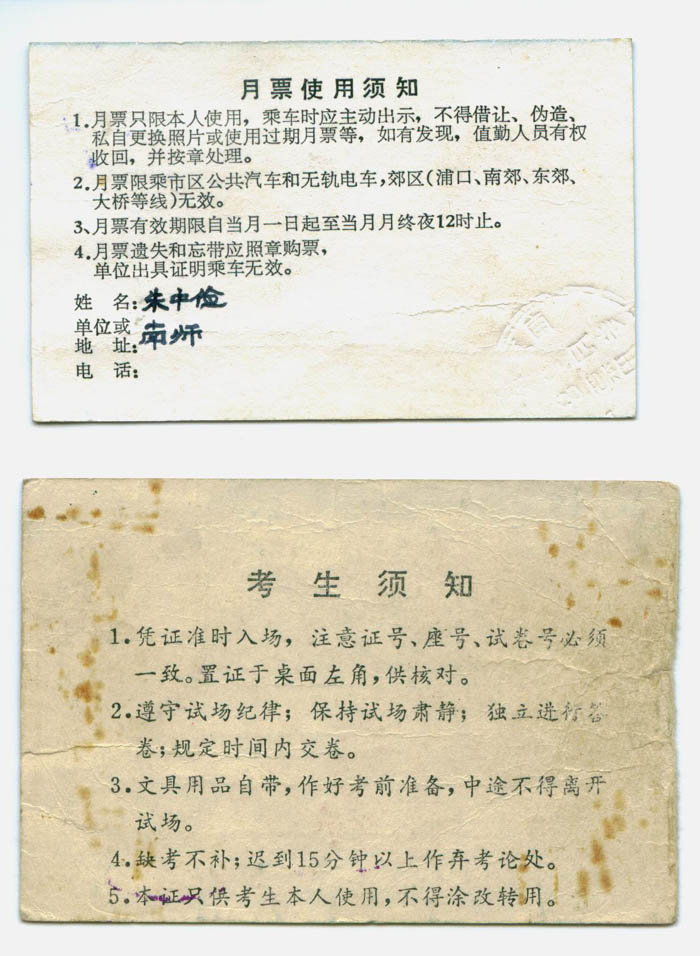 月票使用须知
1.月票只限本人使用，乘车时应主动出示，不得借让、伪造、
私自更换照片或使用过期月票等，如有发现，值勤人员有权
收回，并按章处理。
2.月票限乘市区公共汽车和无轨电车，郊区(浦口、南郊、东郊、
大桥等线)无效。
3、月票有效期限自当月一日起至当月月终夜12时止。
4.月票遗失和忘带应照章购票，
单位出具证明乘车无效。
姓 名：朱中俭
单位或
地 址：南师
电 话：
考生须知
1.凭证准时入场，注意证号、座号、试卷号必须
一致。置证于桌面左角，供核对。
2.遵守试场纪律；保持试场肃静；独立进行答
卷；规定时间内交卷。
3.文具用品自带，作好考前准备，中途不得离开
试场。
4.缺考不补；迟到15分钟以上作弃考论处。
5.本证只供考生本人使用，不得涂改转用。